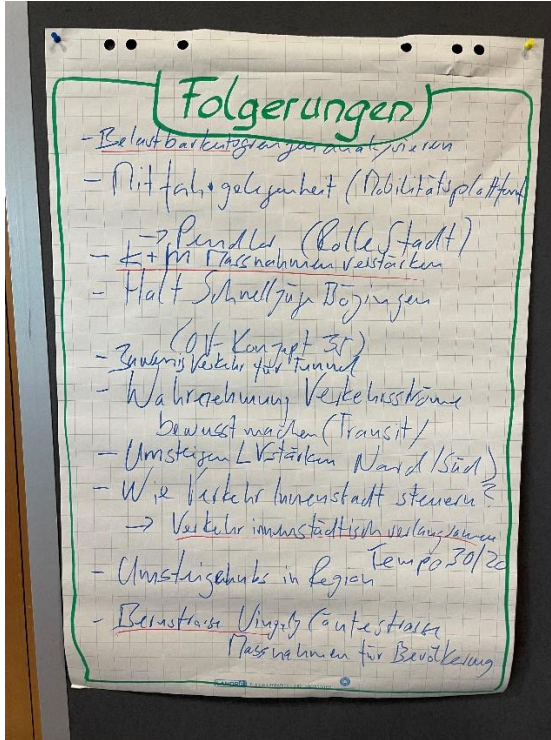 Folgerungen
- Belastbarkeitsgrenzen analysieren
- Mitfahrgelegenheit (Mobilitätsplattform
→ Pendler (Rolle Stadt)
- K+M Massnahmen verstärken
- Halt Schnellzüge Bözingen
(ÖV-Konzept 35)
- Verkehr für Tunnel
- Wahrnehmung Verkehrsströme
bewusst machen (Transit/
- Umsteigen LV stärken Nord/Süd)
- Wie Verkehr Innenstadt steuern?
→ Verkehr innerstädtisch verlangsamen
Tempo 30/20
- Umsteigehubs in Region
- Bernstrasse Vingelz
Massnahmen für Bevölkerung